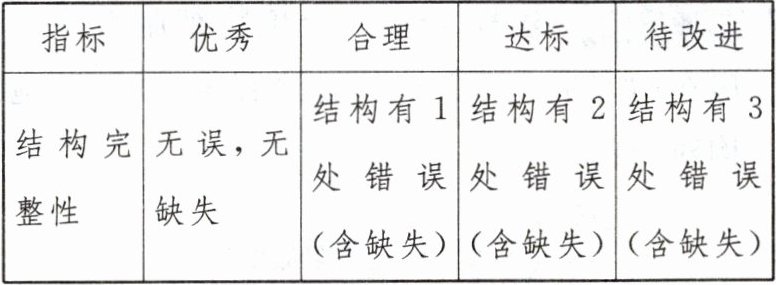 指标 优秀 合理 达标 待改进
结构完整性 无误，无缺失 结构有1处错误（含缺失） 结构有2处错误（含缺失） 结构有3处错误（含缺失）